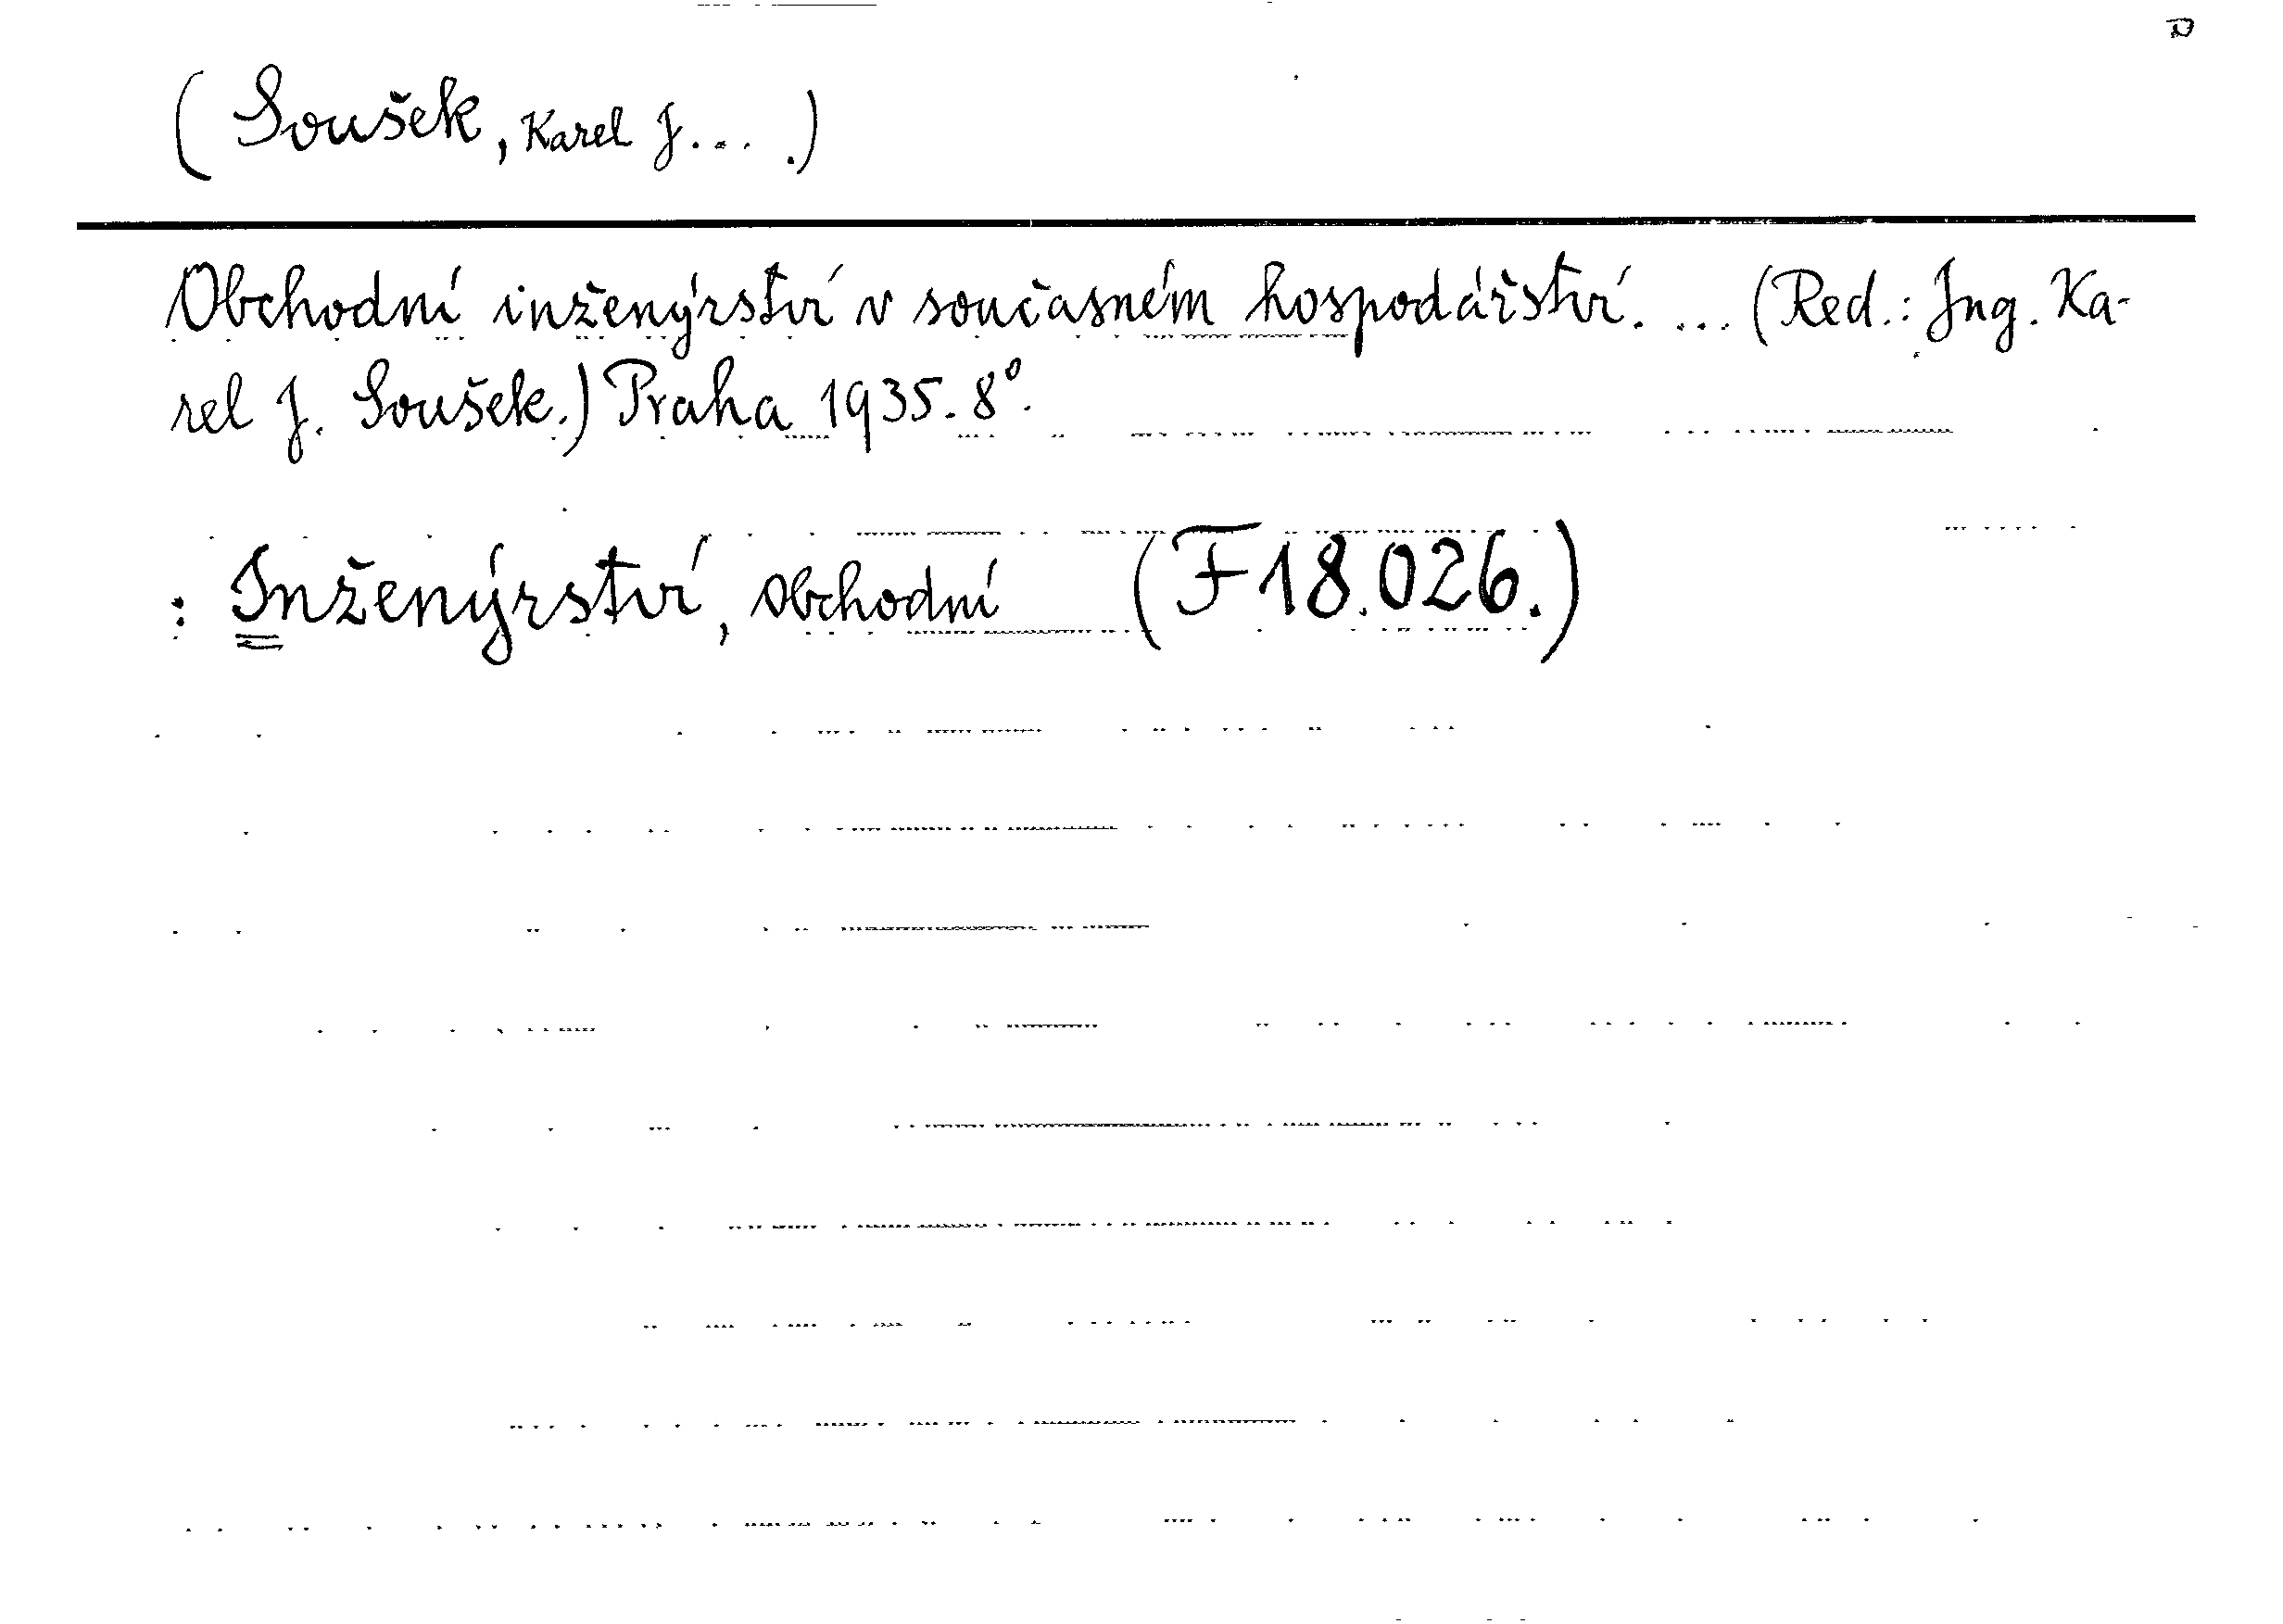 (Soušek, Karel J... .)
Obchodní inženýrství v současném hospodářství. ... (Red.: Jng. Ka-
rel J. Soušek.) Praha 1935. 8°.
: Inženýrství, obchodní (F 18.026.)